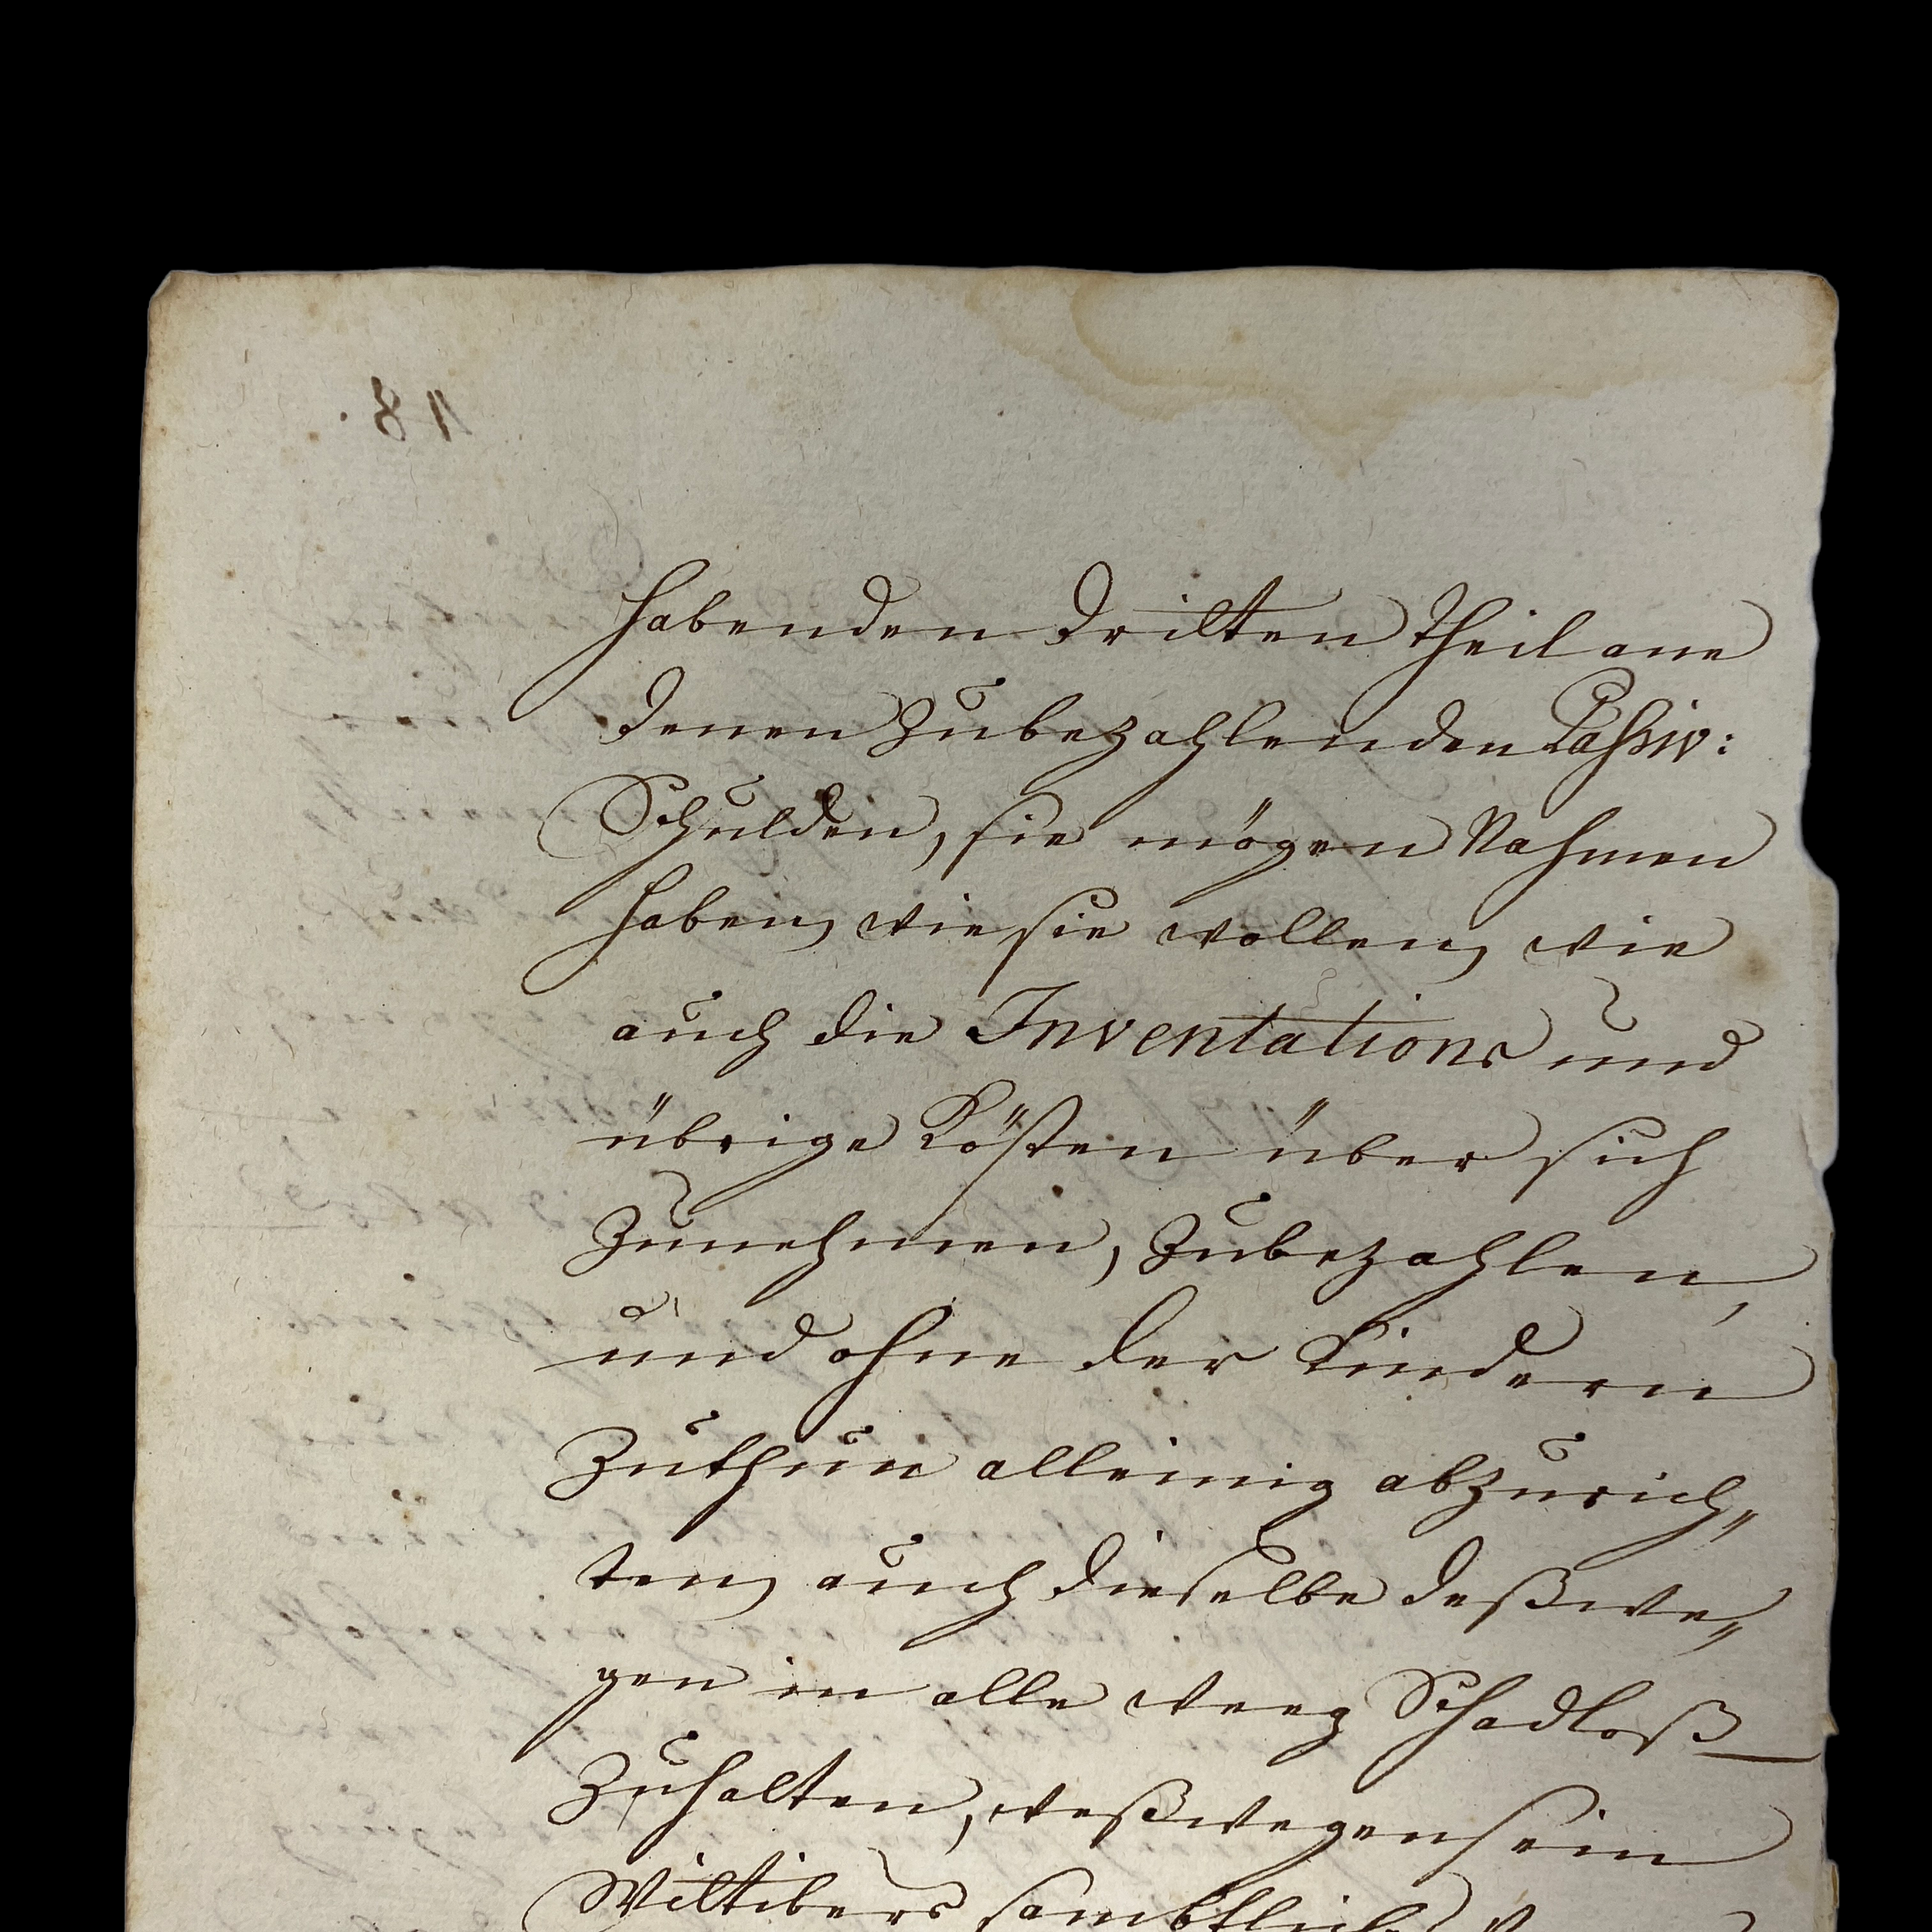 habenden dritten theil ane
denen zubezahlenden Passiv:
Schulden, sie mögen Nahmen
haben, wie sie wollen, wie
auch die Inventations und
übrige Kösten über sich
zunehmen, zubezahlen,
und ohne der Kindern
Zuthun alleinig abzurich„
ten, auch dieselbe deßwe„
gen in alle weeg Schadloß
zuhalten, weßwegen sein
Wittibers sambtliche